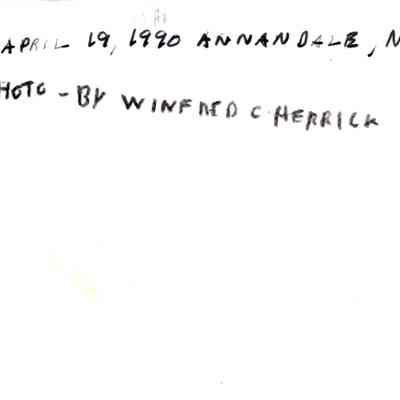 APRIL 19, 1990 ANNANDALE, N
HOTO - BY WINFRED C HERRICK